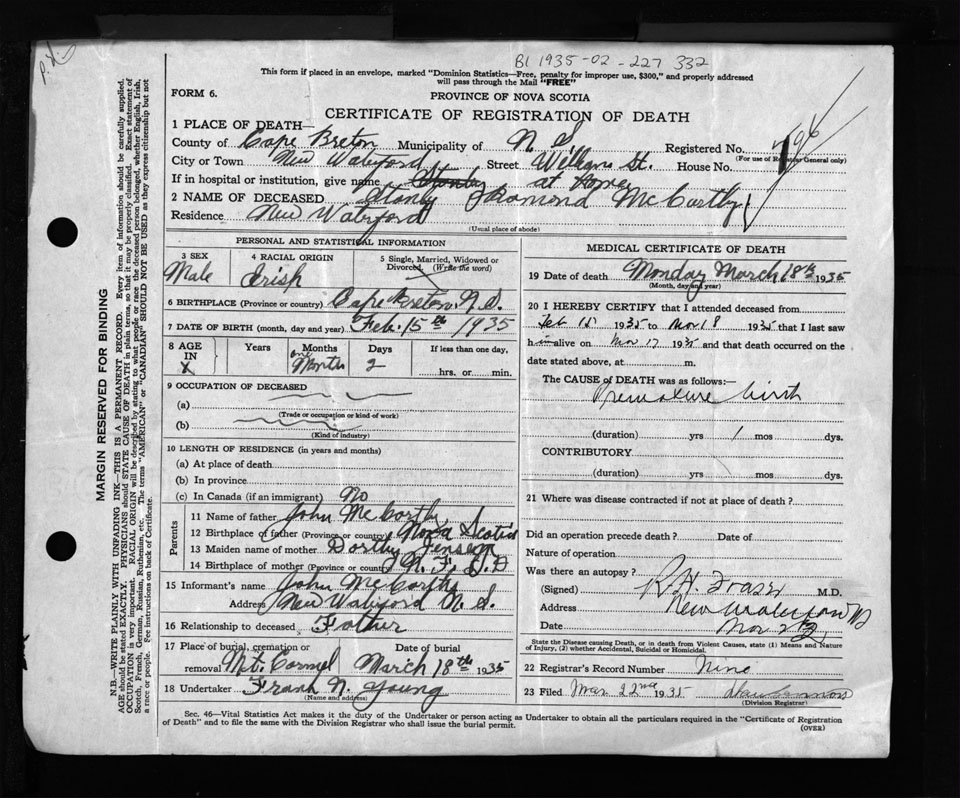 B1 1935-02-227 332
This form if placed in an envelope, marked "Dominion Statistics—Free, penalty for improper use, $300," and properly addressed
will pass through the Mail "FREE"
FORM 6.
PROVINCE OF NOVA SCOTIA
CERTIFICATE OF REGISTRATION OF DEATH
1 PLACE OF DEATH—
County of Cape Breton Municipality of N. S. Registered No.
(For use of Registrar General only)
City or Town New Waterford Street William St. House No.
If in hospital or institution, give name at Home
2 NAME OF DECEASED Stanly Diamond McCarthy
Residence New Waterford
(Usual place of abode)
PERSONAL AND STATISTICAL INFORMATION
3 SEX Male
4 RACIAL ORIGIN Irish
5 Single, Married, Widowed or Divorced. (Write the word)
6 BIRTHPLACE (Province or country) Cape Breton N.S.
7 DATE OF BIRTH (month, day and year) Feb. 15th 1935
8 AGE IN Years Months Days If less than one day,
one Month 2 hrs. or min.
9 OCCUPATION OF DECEASED
(a)
(Trade or occupation or kind of work)
(b)
(Kind of industry)
10 LENGTH OF RESIDENCE (in years and months)
(a) At place of death
(b) In province
(c) In Canada (if an immigrant) No
Parents
11 Name of father John McCarthy
12 Birthplace of father (Province or country) Nova Scotia
13 Maiden name of mother Dorthy Jensen
14 Birthplace of mother (Province or country) N. F. L. D
15 Informant's name John McCarthy
Address New Waterford N. S.
16 Relationship to deceased Father
17 Place of burial, cremation or removal Mt. Carmel Date of burial March 18th 1935
18 Undertaker Frank N. Young
(Name and address)
MEDICAL CERTIFICATE OF DEATH
19 Date of death Monday March 18th 1935
(Month, day and year)
20 I HEREBY CERTIFY that I attended deceased from
Feb 15 1935 to Mar 18 1935 that I last saw
him alive on Mar 17 1935 and that death occurred on the
date stated above, at m.
The CAUSE of DEATH was as follows:—
Premature birth
(duration) yrs 1 mos dys.
CONTRIBUTORY
(duration) yrs. mos. dys.
21 Where was disease contracted if not at place of death?
Did an operation precede death? Date of
Nature of operation
Was there an autopsy?
(Signed) R H Fraser M.D.
Address New Waterford
Date Mar 22
State the Disease causing Death, or in death from Violent Causes, state (1) Means and Nature
of Injury, (2) whether Accidental, Suicidal or Homicidal.
22 Registrar's Record Number Nine
23 Filed Mar 22nd 1935
(Division Registrar)
Sec. 46—Vital Statistics Act makes it the duty of the Undertaker or person acting as Undertaker to obtain all the particulars required in the "Certificate of Registration
of Death" and to file the same with the Division Registrar who shall issue the burial permit.
(OVER)
MARGIN RESERVED FOR BINDING
N.B.—WRITE PLAINLY WITH UNFADING INK—THIS IS A PERMANENT RECORD. Every item of information should be carefully supplied.
AGE should be stated EXACTLY. PHYSICIANS should STATE CAUSE OF DEATH in plain terms, so that it may be properly classified. Exact statement of
OCCUPATION is very important. RACIAL ORIGIN will be described by stating to what people or race the deceased person belonged, whether English, Irish,
Scotch, French, German, Russian, Ruthenian, etc. The terms "AMERICAN" or "CANADIAN" SHOULD NOT BE USED as they express citizenship but not
a race or people. See instructions on back of Certificate.